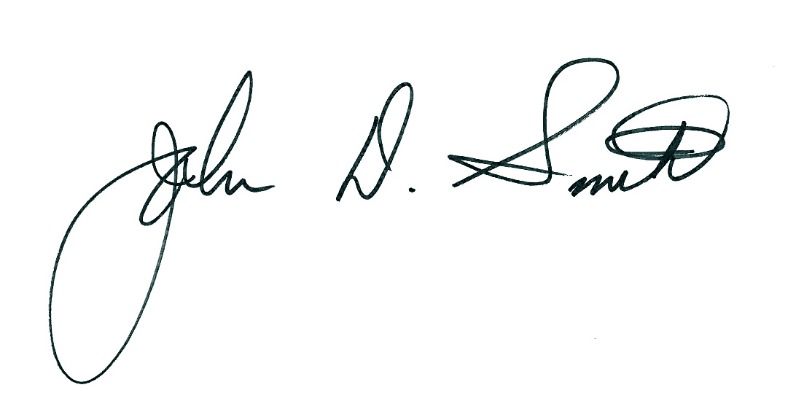 John D. Smith